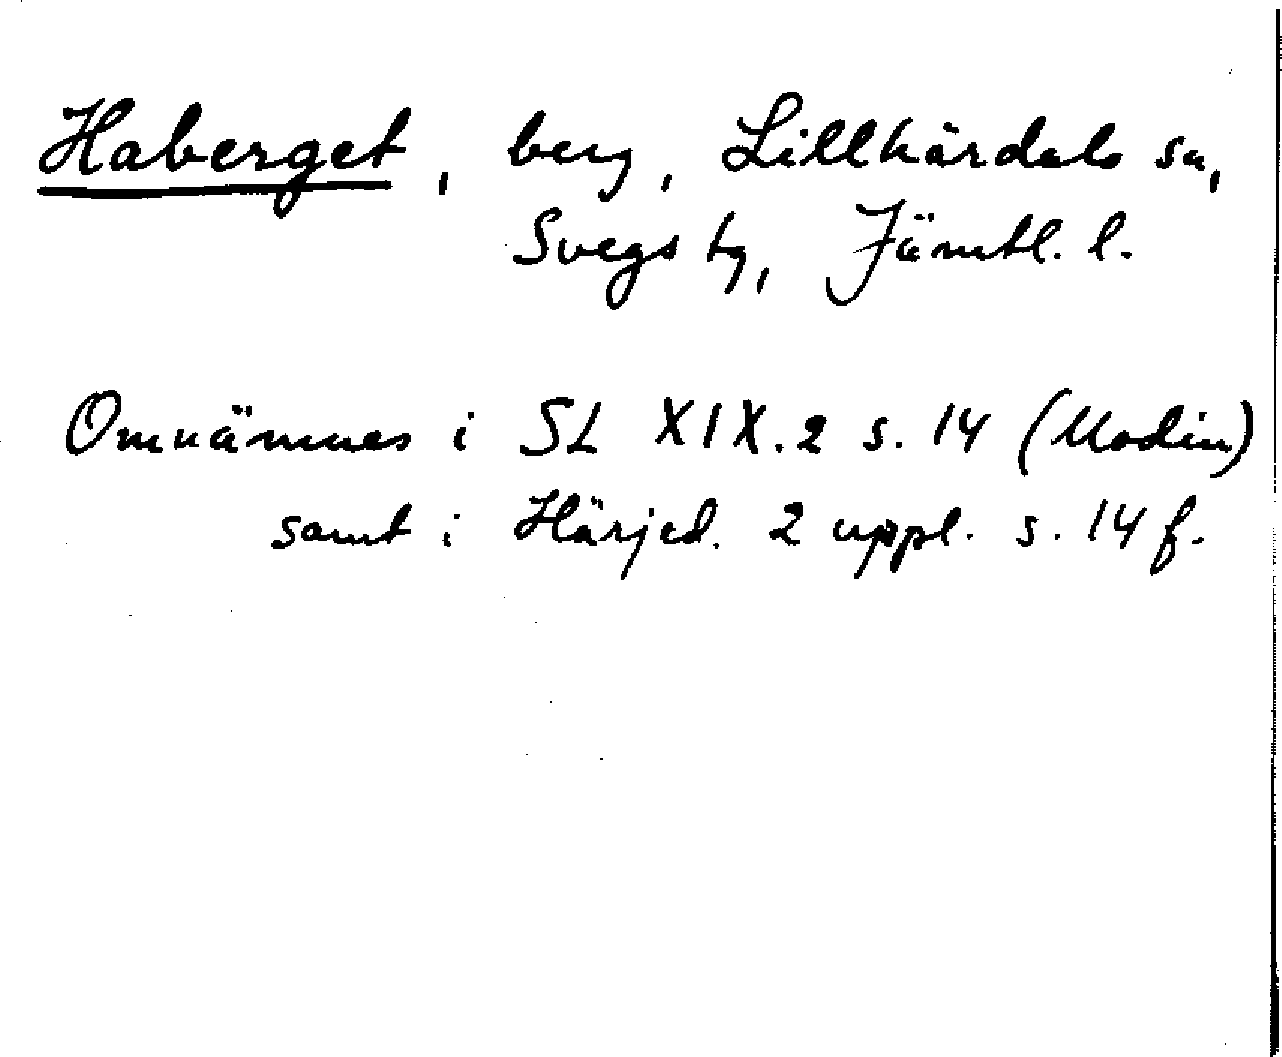 Haberget, berg, Lillhärdals sn,
Svegs tg, Jämtl. l.
Omnämnes i SL XIX.2 s. 14 (Modin)
samt i Härjed. 2 uppl. s. 14 f.